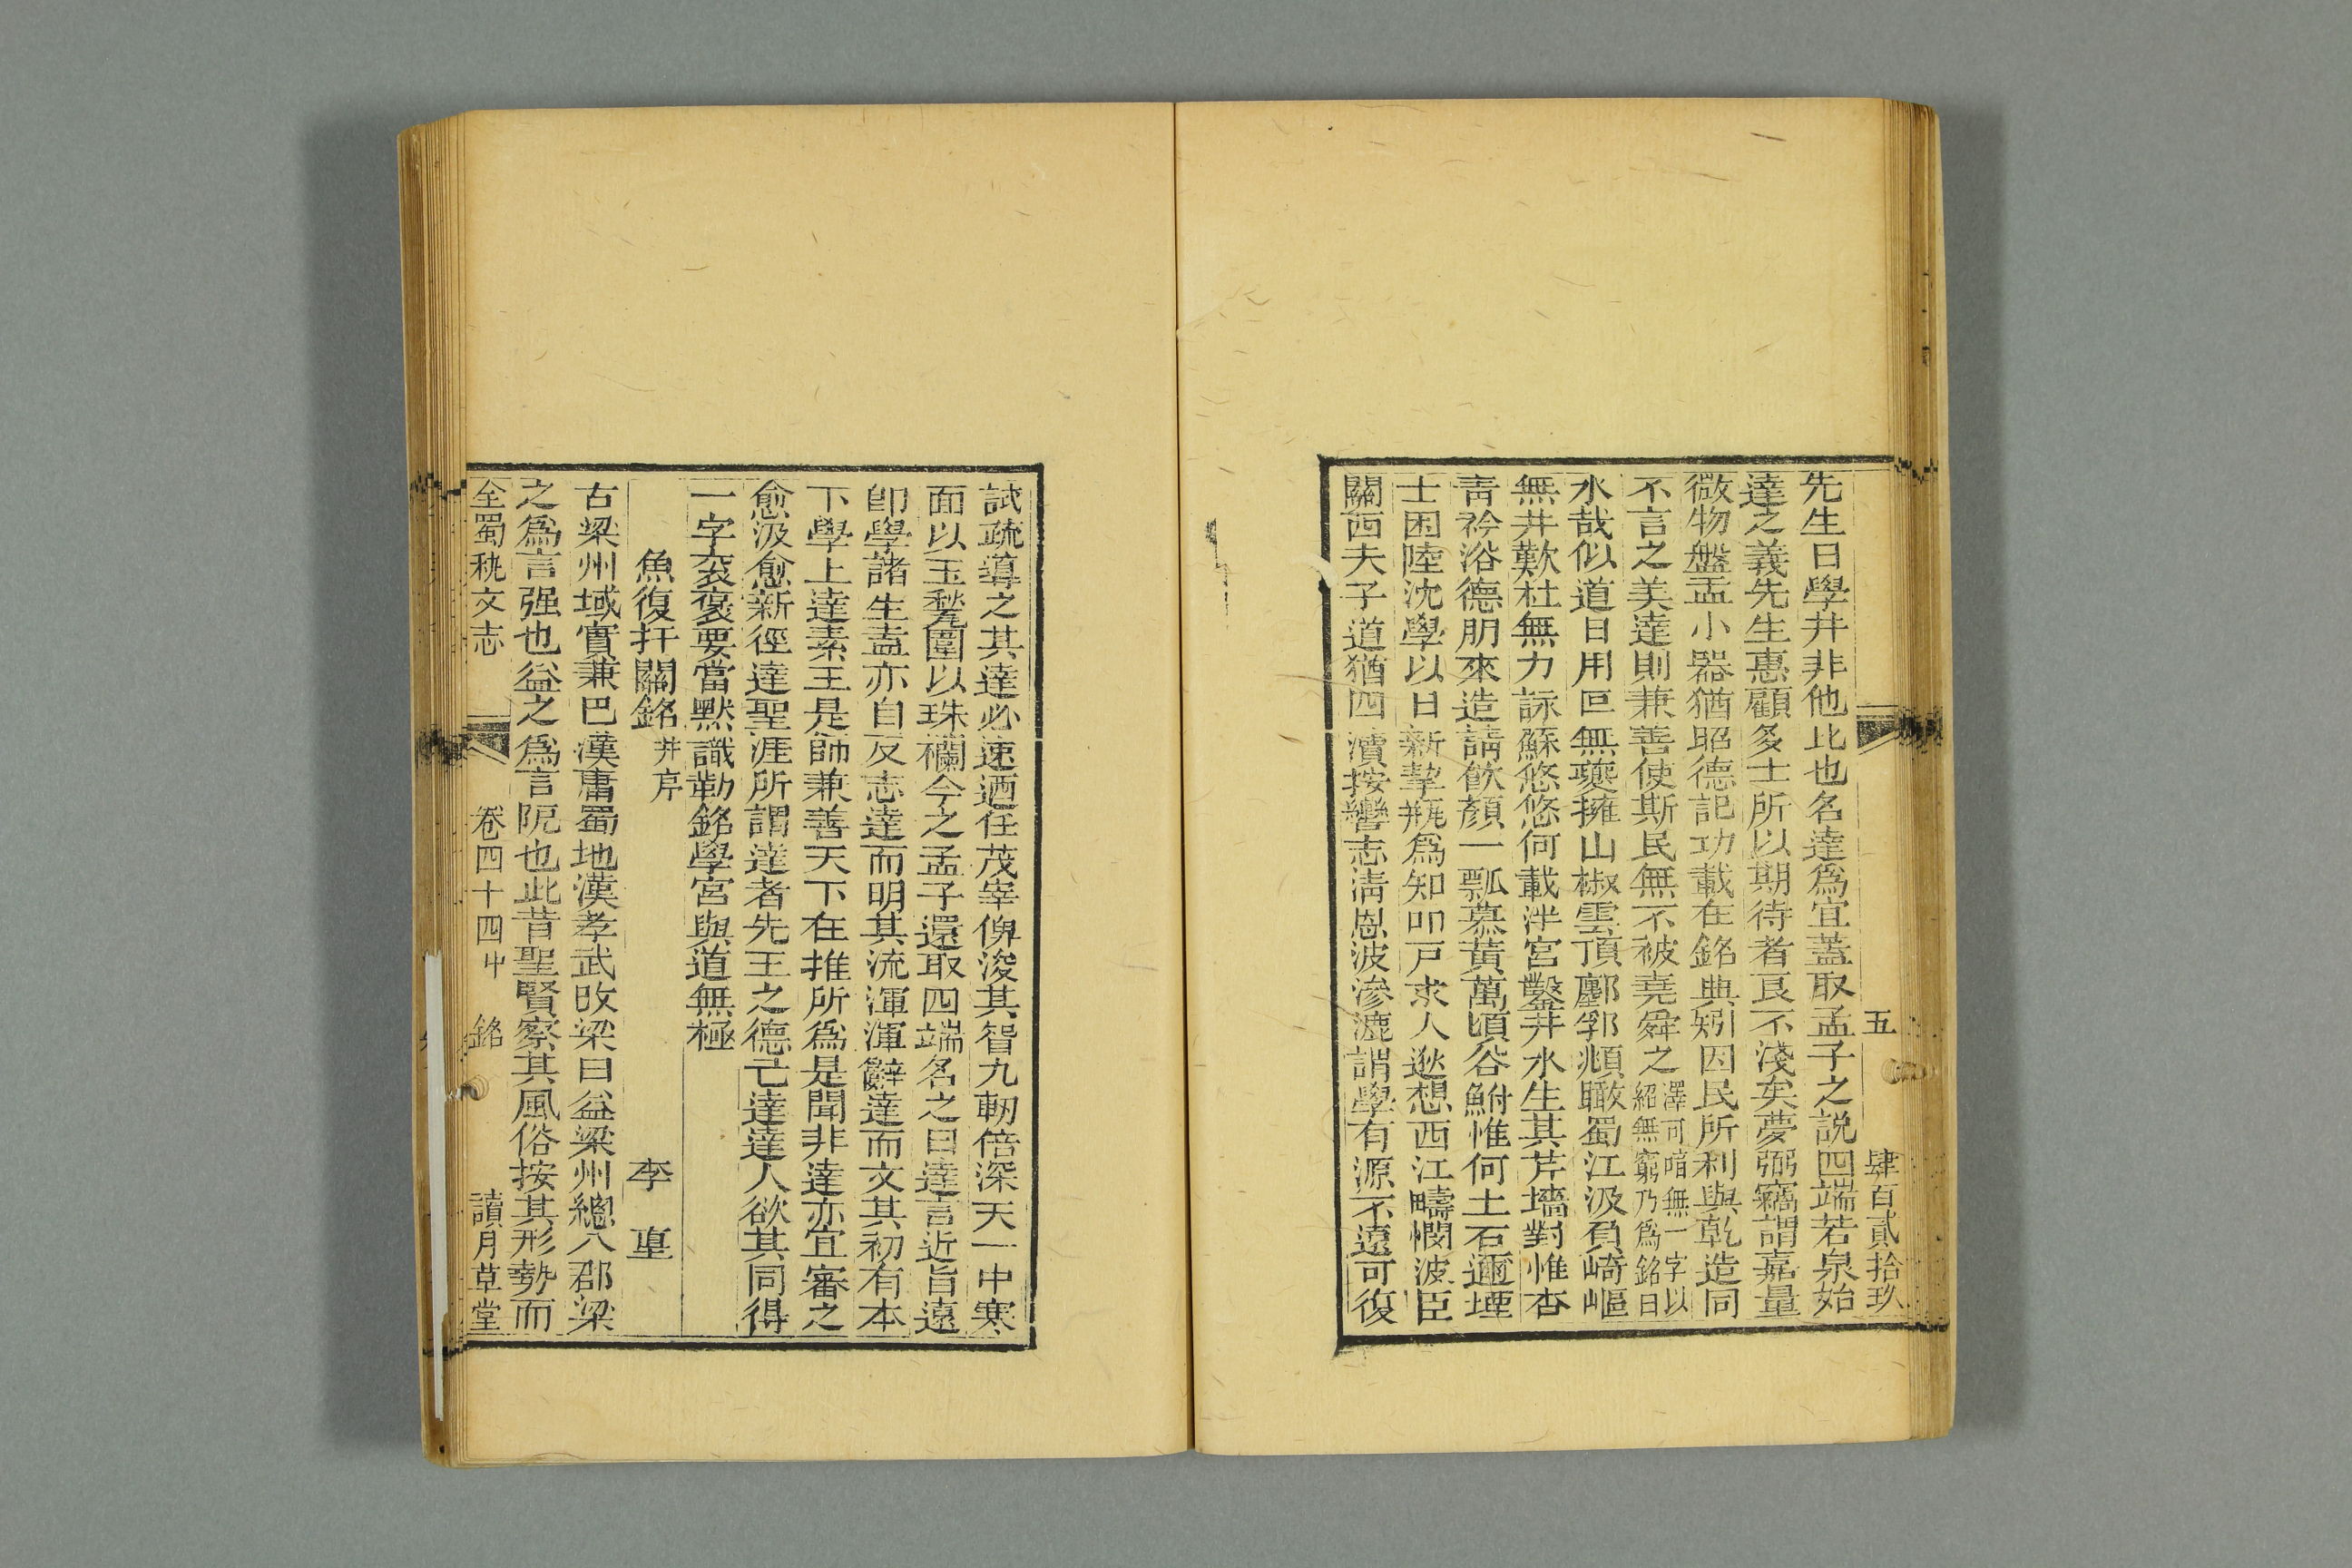 五　肆百貳拾玖
先生曰學井非他比也名達爲宜蓋取孟子之説四端若泉始
達之義先生惠顧多士所以期待者良不淺矣夢弼竊謂嘉量
微物盤盂小器猶昭德記功載在銘典矧因民所利與乾造同
不言之美達則兼善使斯民無不被堯舜之澤可喑無一字以紹無窮乃爲銘曰
水哉似道日用叵無夔擁山椒雲頂鄽郛兆頫瞰蜀江汲負崎嶇
無井歎杜無力詠蘇悠悠何載泮宮鑿井水生其芹墻對惟杏
青衿浴德朋來造請飲顏一瓢慕黃萬頃谷鮒惟何土石邇堙
士困陸沈學以日新挈瓶爲知叩戸求人逖想西江疇憫波臣
關西夫子道猶四瀆按轡志淸恩波滲漉謂學有源不遠可復
試疏導之其達必速迺任茂宰俾浚其智九軔倍深天一中寒
面以玉甃圍以珠欄今之孟子還取四端名之曰達言近旨遠
卽學諸生盍亦自反志達而明其流渾渾辭達而文其初有本
下學上達素王是師兼善天下在推所爲是聞非達亦宜審之
愈汲愈新徑達聖涯所謂達者先王之德亡達達人欲其同得
一字衮襃要當黙識勒銘學宮與道無極
魚復扞關銘井序　李𡍼
古梁州域實兼巴漢庸蜀地漢孝武攺梁曰益梁州總八郡梁
之爲言强也益之爲言阨也此昔聖賢察其風俗按其形勢而
全蜀秇文志　卷四十四中　銘　讀月草堂